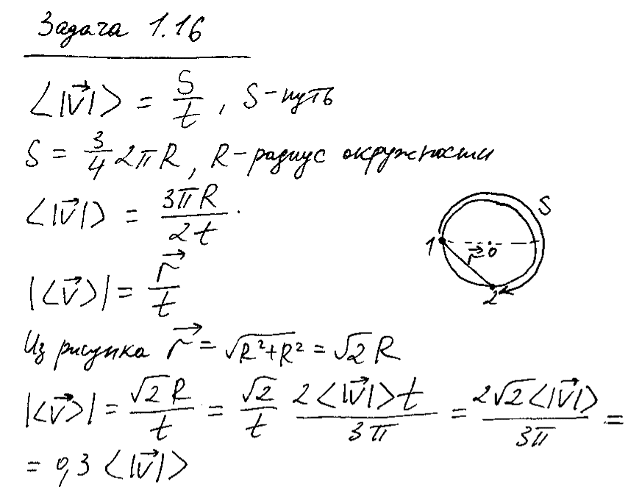 Задача 1.16
⟨|v⃗|⟩ = S/t, S-путь
S = 3/4 2πR, R-радиус окружности
⟨|v⃗|⟩ = 3πR/2t.
|⟨v⃗⟩| = r⃗/t
Из рисунка r⃗ = √(R²+R²) = √2 R
|⟨v⃗⟩| = √2 R/t = √2/t 2⟨|v⃗|⟩t/3π = 2√2⟨|v⃗|⟩/3π =
= 0,3 ⟨|v⃗|⟩
S
1 r⃗ 0
2